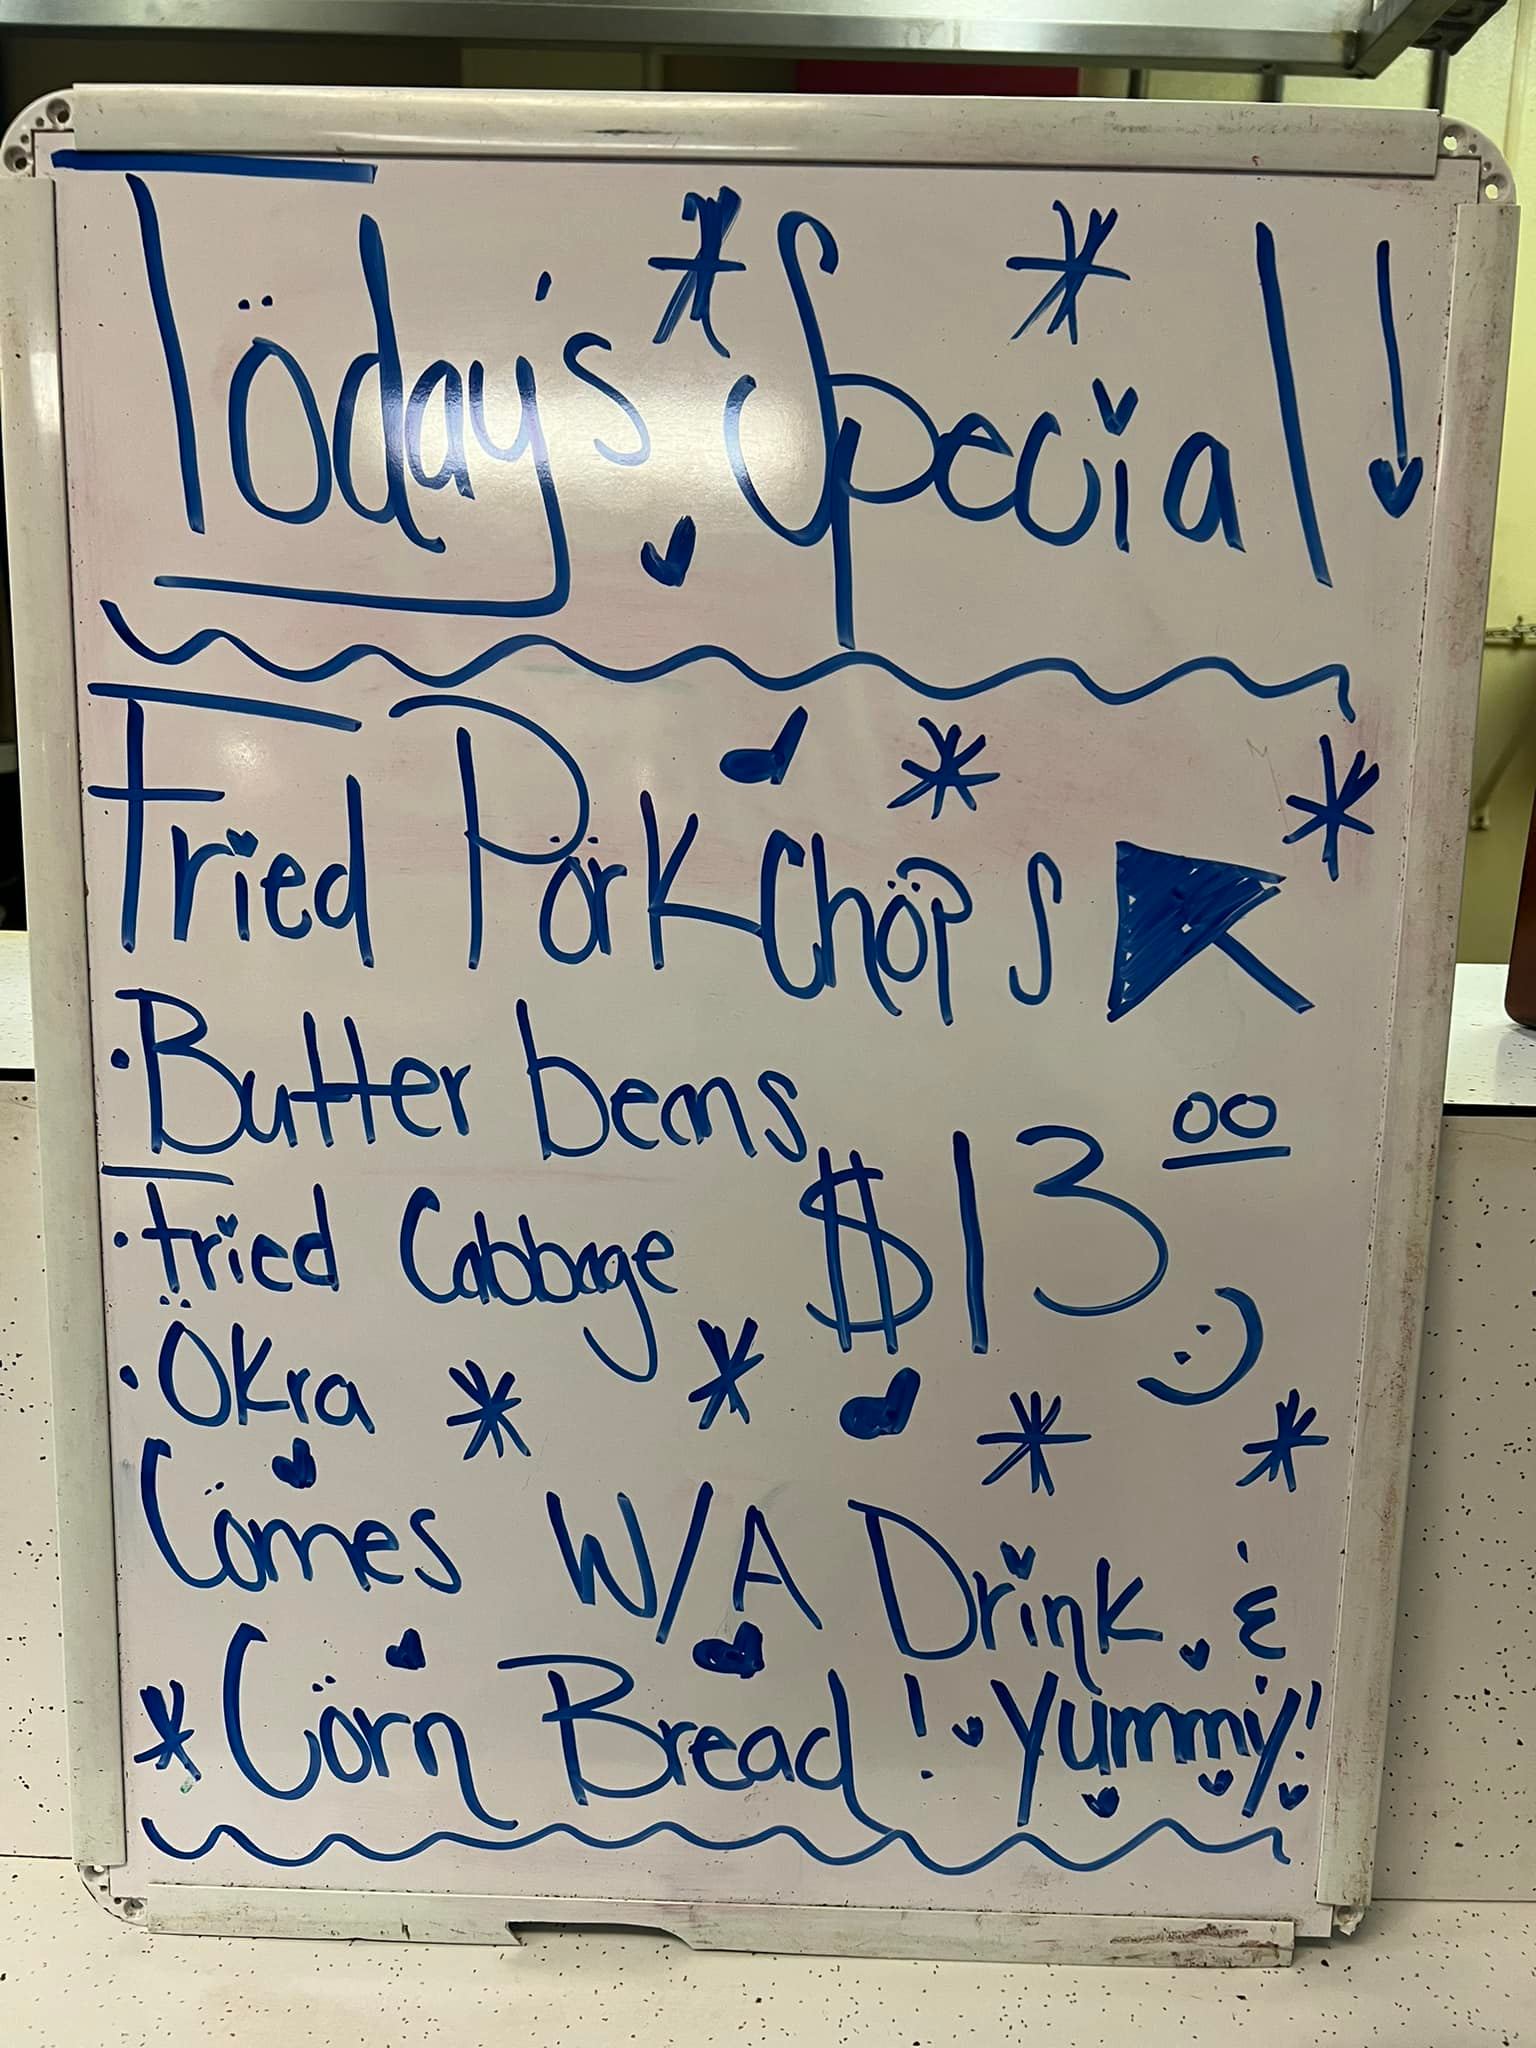 Today's Special
Fried Pork Chops
• Butter beans
$13.00
• Fried Cabbage
• Okra
Comes W/A Drink &
* Corn Bread! Yummy!